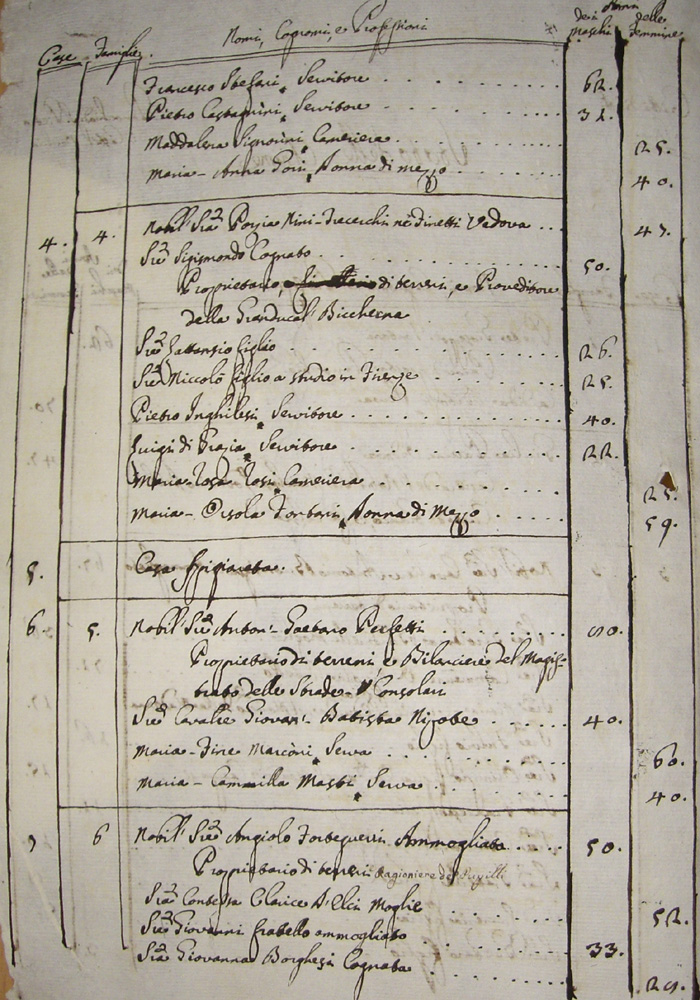 Case. Famiglie. Nomi, Cognomi, e Professioni Anni dei Maschi delle Femmine
Francesco Stefani, Servitore 62.
Pietro Castagnini, Servitore 31.
Maddalena Signorini, Cameriera 25.
Maria-Anna Gori, Donna di mezzo 40.
4. 4. Nobil' Sig.ra Porzia Nini- ne' Finetti Vedova 47.
Sig.re Sigismondo Cognato 50.
Proprietario, di terreni, e Proveditore
della Granducal' Biccherna
Sig.re Figlio 26.
Sig.re Niccolò Figlio a studio in Firenze 25.
Pietro Inghilesi, Servitore 40.
Luigi di Grazia, Servitore 22.
Maria-Rosa Rosi, Cameriera 25.
Maria-Orsola Donna di Mezzo 59.
5. Casa Spigionata.
6. 5. Nobil' Sig.re Anton'-Gaetano Perfetti 50.
Proprietario di terreni e Bilanciere del Magis-
trato delle Strade- Consolari
Sig.re Cavalie Giovan'-Batista 40.
Maria- Marconi, Serva 60.
Maria-Cammilla Masti, Serva 40.
7 6 Nobil' Sig.re Angiolo Forteguerri Ammogliato 50.
Proprietario di terreni Ragioniere de' Pupilli
Sig.ra Contessa Clarice D'Elci Moglie 52.
Sig.re Giovanni fratello ammogliato 33.
Sig.ra Giovanna Borghesi Cognata 29.